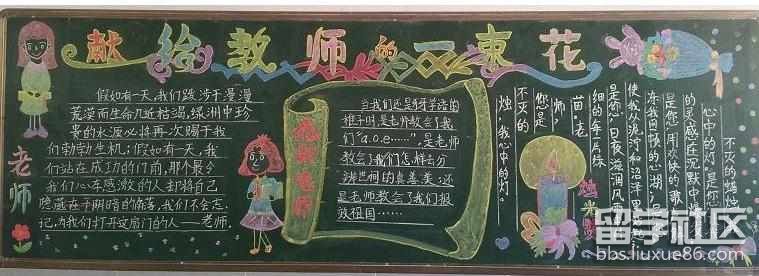 献给教师的一束花
老师
假如有一天,我们跋涉于漫漫
荒漠而生命几近枯竭,绿洲中珍
贵的水源必将再次赐于我
们勃勃生机;假如有一天,我
们站在成功的门前,那个最令
我们心存感激的人却将自己
隐藏在于阴暗的角落,我们不会忘
记,为我们打开这扇门的人——老师.
感谢老师
当我们还是牙牙学语的
稚子时,是老师教会了我
们"a.o.e……",是老师
教会了我们怎样去分
辨世间的真善美;还
是老师教会了我们报
效祖国……
不灭的蜡烛
心中的灯,是您
的灵感在沉默中爆
是您,用欢快的歌
冻我日愀的心湖,是
使我从泥河和沼泽里
是您,日夜滋润风
细的垂片绿
苗,老
师,
您是
不灭的
烛,我心中的灯。
烛光
留学社区
bbs.liuxue86.com